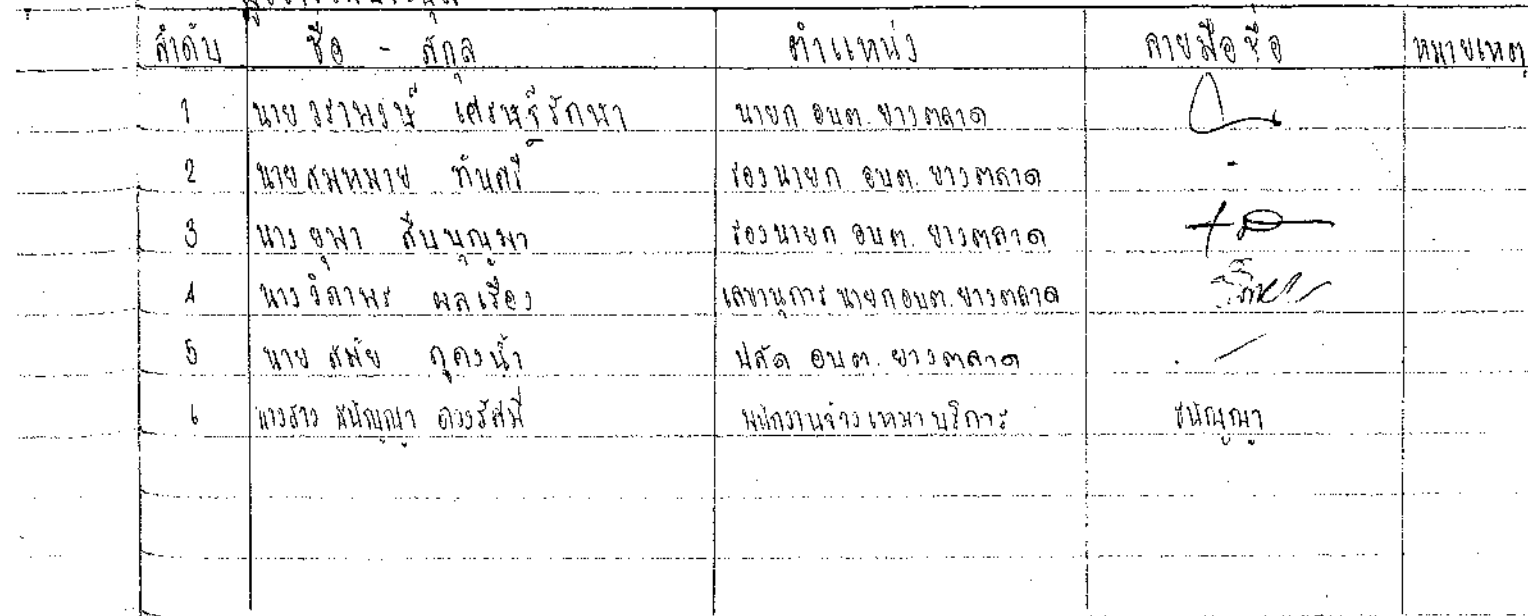 ลำดับ ชื่อ - สกุล ตำแหน่ง ลายมือชื่อ หมายเหตุ
1 นาย วราพงษ์ เศรษฐีรักษา นายก อบต. ยางตลาด
2 นาย สมหมาย ทันศรี รองนายก อบต. ยางตลาด -
3 นาง ยุพา สืบบุญมา รองนายก อบต. ยางตลาด
4 นาง วิลาพร ผลเรือง เลขานุการ นายก อบต. ยางตลาด
5 นาย สมัย ภูคงน้ำ ปลัด อบต. ยางตลาด
6 นางสาว ชนัญญา ดวงรัศมี พนักงานจ้างเหมาบริการ ชนัญญา